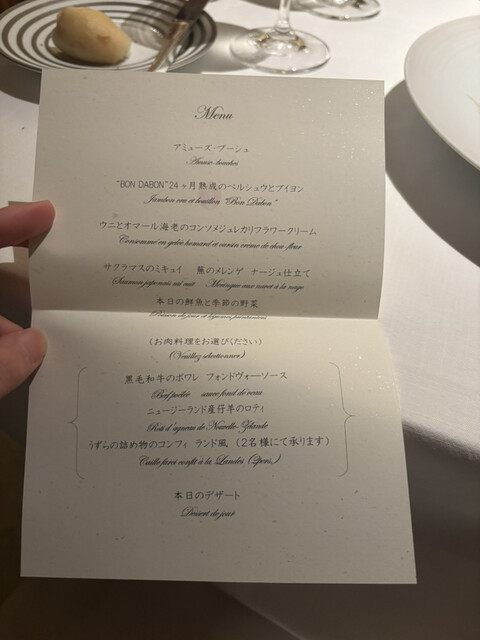 Menu
アミューズ・ブーシュ
Amuse-bouches
"BON DABON"24ヶ月熟成のペルシュウとブイヨン
Jambon cru et bouillon "Bon Dabon"
ウニとオマール海老のコンソメジュレカリフラワークリーム
Consommé en gelée homard et oursin crème de chou-fleur
サクラマスのミキュイ 蕪のメレンゲ ナージュ仕立て
Saumon japonais mi-cuit Meringue aux navet à la nage
本日の鮮魚と季節の野菜
Poisson de jour et légumes
(お肉料理をお選びください)
(Veuillez selectionner)
黒毛和牛のポワレ フォンドヴォーソース
Bœf poêlée sauce fond de veau
ニュージーランド産仔羊のロティ
Roti d'agneau de Nouvelle-Zélande
うずらの詰め物のコンフィ ランド風 (2名様にて承ります)
Caille farci confit à la Landes (2pers,)
本日のデザート
Dessert de jour